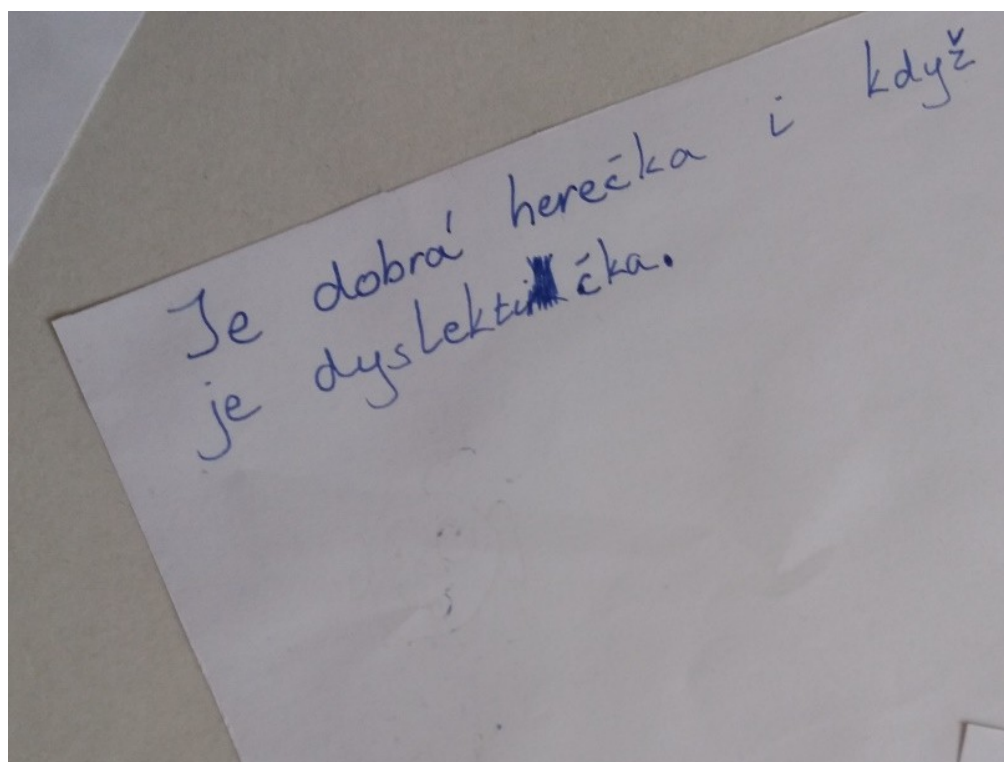 Je dobrá herečka i když
je dyslektička.